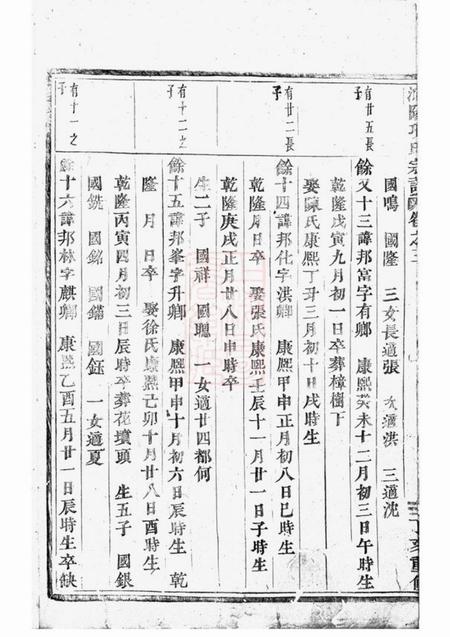 宗譜
國鳴 國隆 三女長適張 次適洪 三適沈
有廿五長子
餘又十三諱邦富字有卿 康熙癸未十二月初三日午時生
乾隆戊寅九月初一日卒葬樟樹下
娶陳氏康熙丁丑三月初十日戌時生
有廿二長子
餘十四諱邦化字洪卿 康熙甲申正月初八日巳時生
乾隆 月 日卒 娶張氏康熙壬辰十一月廿一日子時生
乾隆庚戌正月廿八日申時卒
生二子 國祥 國聰 一女適廿四都何
有十二之子
餘十五諱邦峯字升卿 康熙甲申十月初六日辰時生 乾
隆 月 日卒 娶徐氏康熙己卯十月廿八日酉時生
乾隆丙寅四月初三日辰時卒葬花墳頭 生五子 國銀
國銑 國銘 國鏋 國鈺 一女適夏
有十一之子
餘十六諱邦林字麒卿 康熙乙酉五月廿一日辰時生卒缺